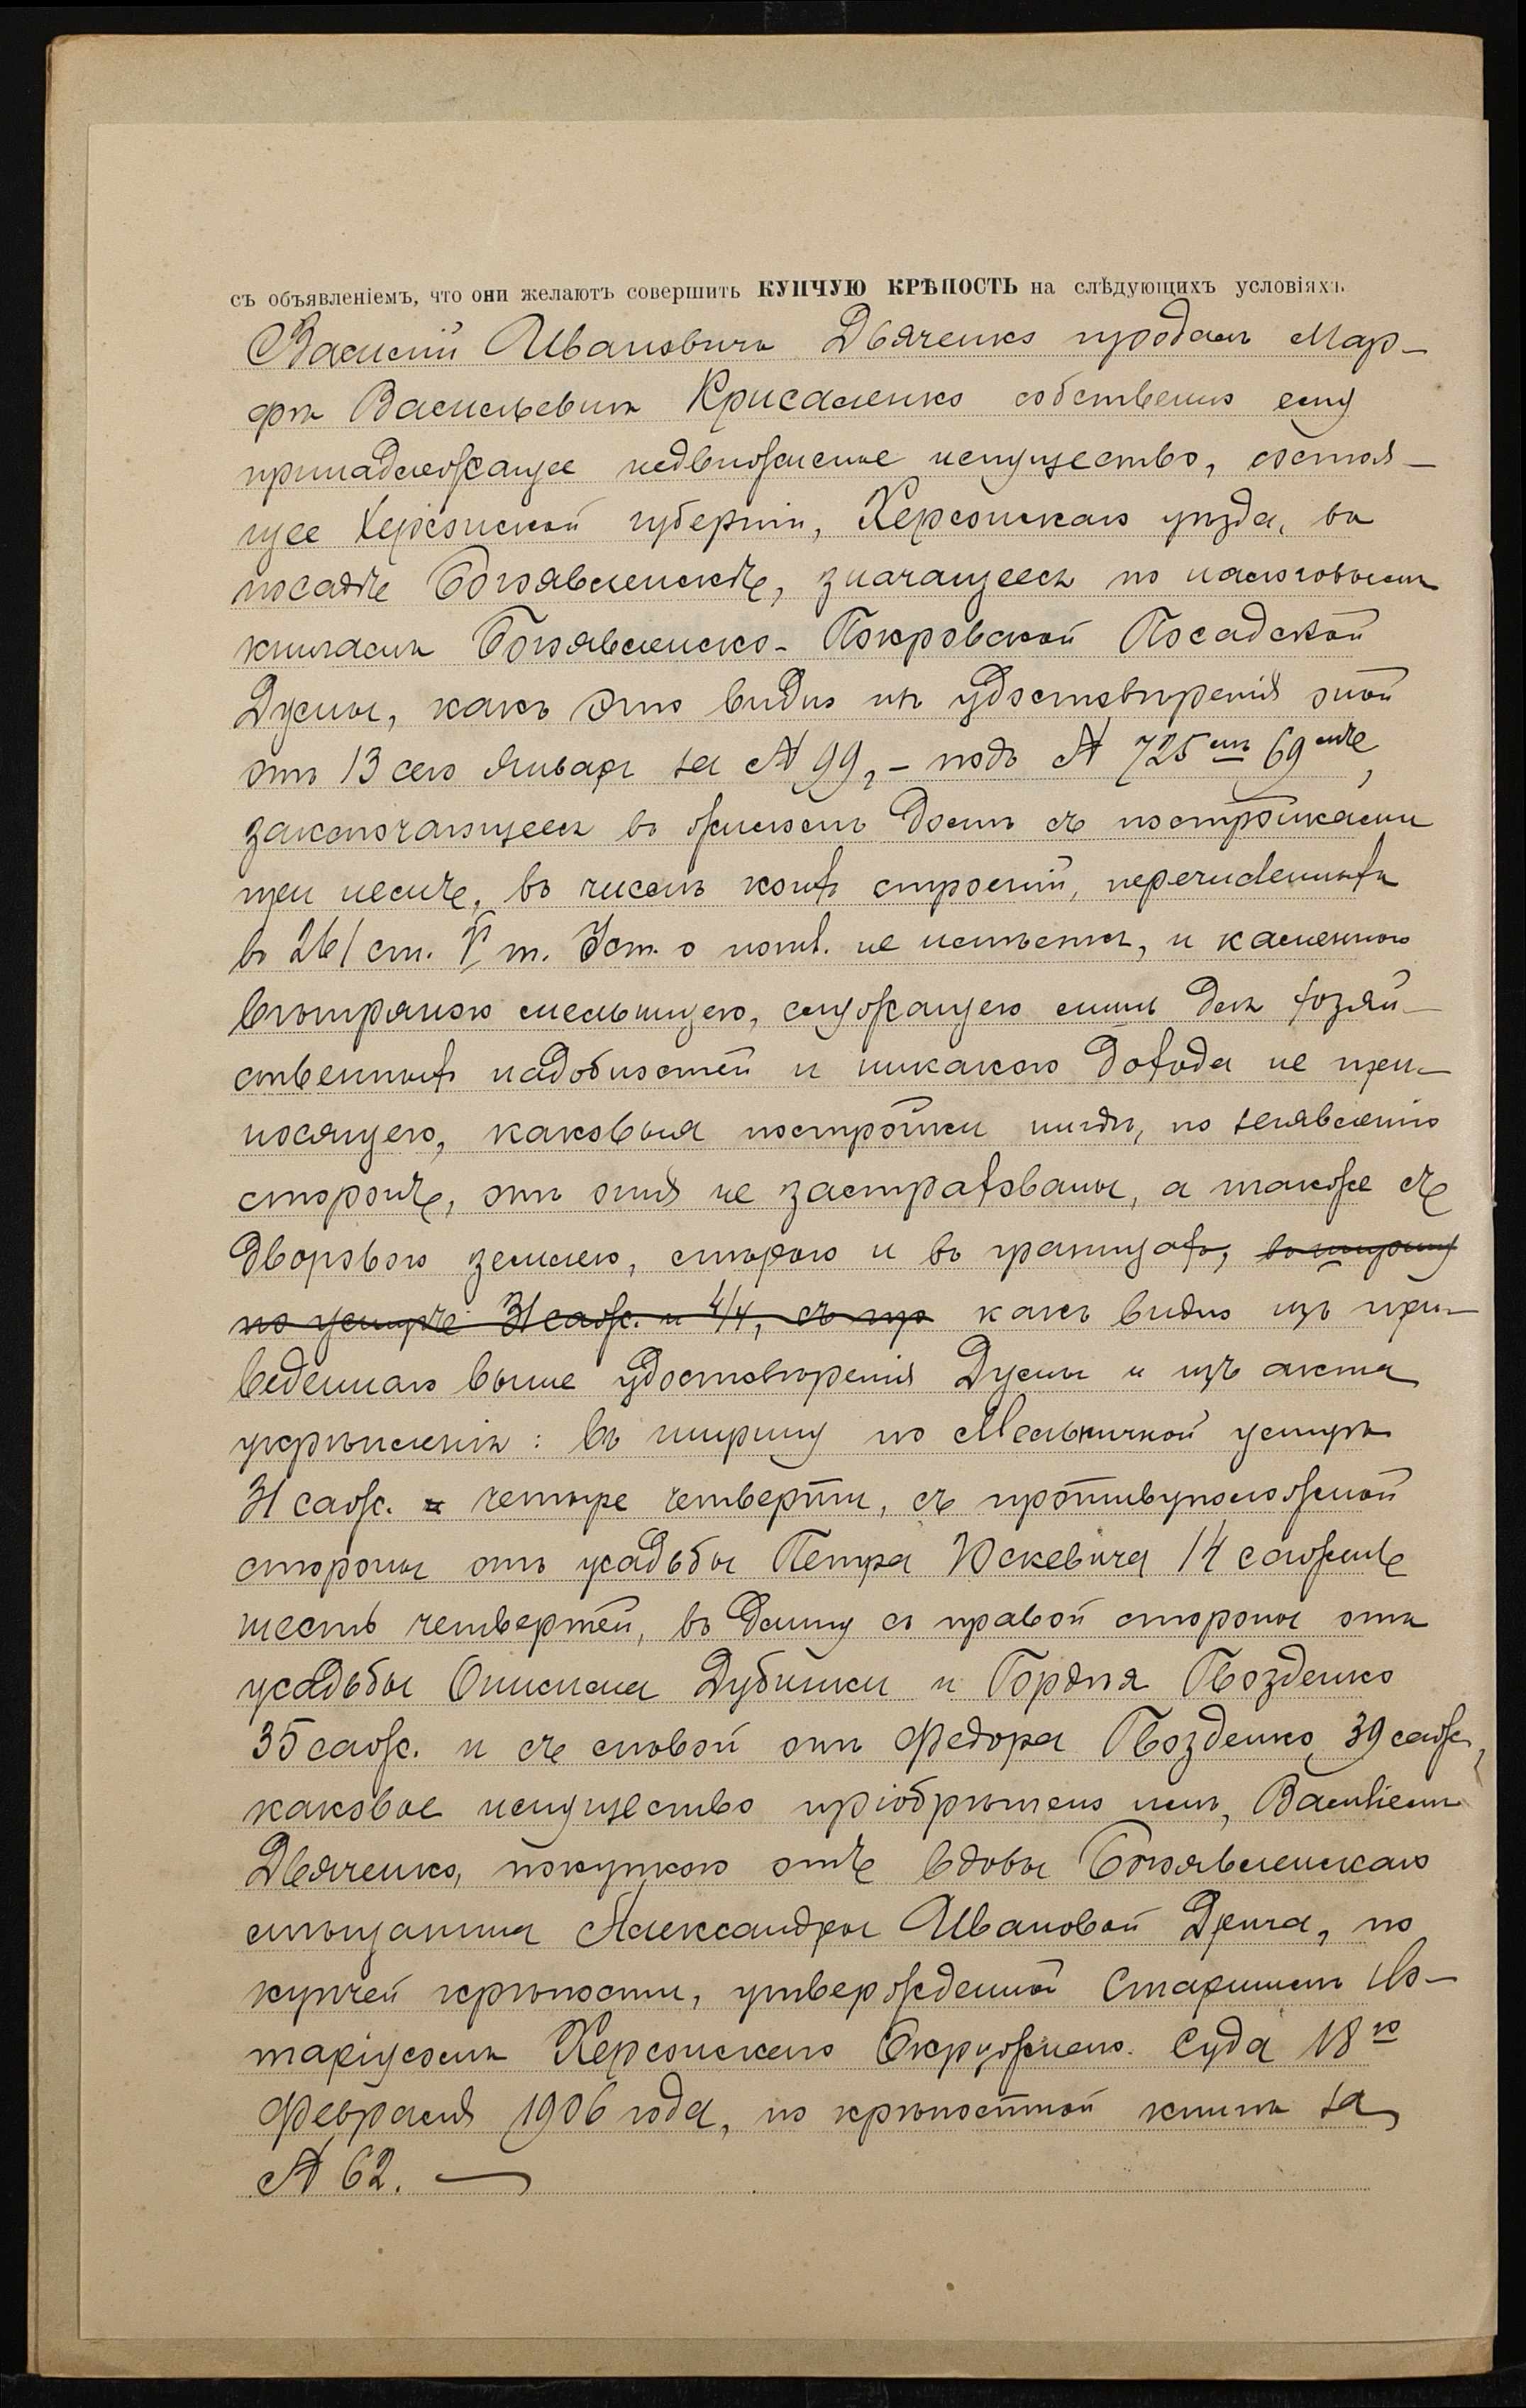 съ объявленіемъ, что они желаютъ совершить КУПЧУЮ КРѢПОСТЬ на слѣдующихъ условіяхъ
Василій Ивановичъ Дьяченко продалъ Мар-
фѣ Васильевнѣ Крисаленко собственно ему
принадлежащее недвижимое имущество, состоя-
щее Херсонской губерніи, Херсонскаго уѣзда, въ
посадѣ Богоявленскѣ, значащееся по налоговымъ
книгамъ Богоявленско-Покровской Посадской
Думы, какъ это видно изъ удостовѣренія оной
отъ 13 сего Января за № 99, - подъ № 725мъ 69мъ,
заключающееся въ жиломъ домѣ съ постройками
при немъ, въ числѣ коихъ строеній, перечисленныхъ
въ 261 ст. V т. Уст. о пошл. не имѣется, и каменного
вѣтряною мельницею, служащею лишь для хозяй-
ственныхъ надобностей и никакого дохода не при-
носящею, каковыя постройки нигдѣ, по заявленію
сторонъ, отъ огня не застрахованы, а также съ
дворовою землею, мѣрою и въ границахъ, въ ширину
по улицѣ 31 саж. и 4/4, съ про какъ видно изъ при-
веденнаго выше удостовѣренія Думы и изъ акта
укрѣпленія: въ ширину по Мельничной улицѣ
31 саж. и четыре четверти, съ противуположной
стороны отъ усадьбы Петра Юскевича 14 саженъ
шесть четвертей, въ длину съ правой стороны отъ
усадьбы Онисима Дубинки и Гордѣя Гвозденко
35 саж. и съ лѣвой отъ Федора Гвозденко 39 саж.,
каковое имущество пріобрѣтено имъ, Василіемъ
Дьяченко, покупкою отъ вдовы Богоявленскаго
мѣщанина Александры Ивановой Дрига, по
купчей крѣпости, утвержденной Старшимъ Но-
таріусомъ Херсонскаго Окружнаго Суда 18го
Февраля 1906 года, по крѣпостной книгѣ за
№ 62.